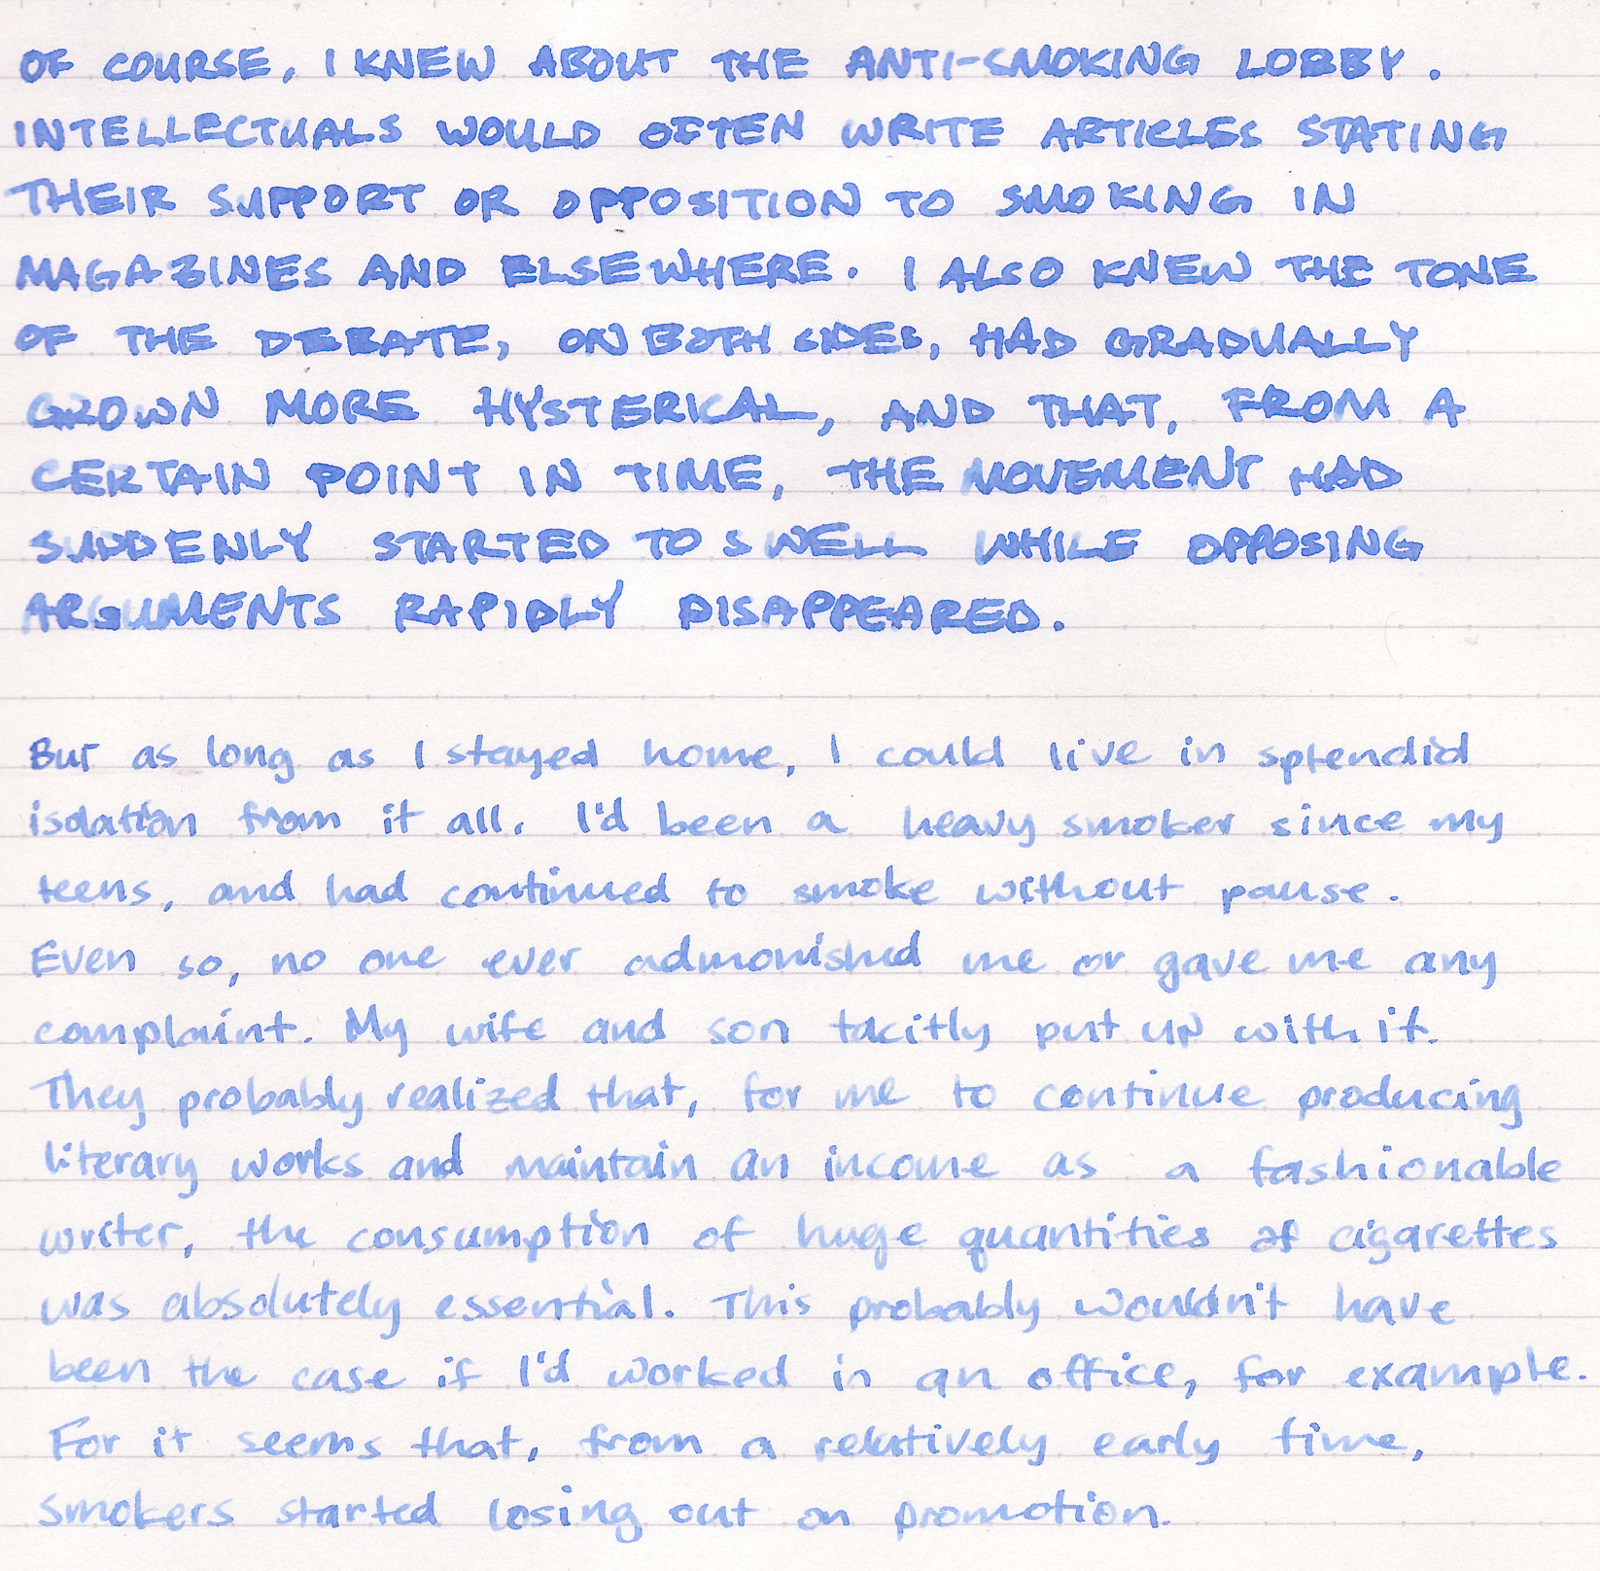 OF COURSE, I KNEW ABOUT THE ANTI-SMOKING LOBBY.
INTELLECTUALS WOULD OFTEN WRITE ARTICLES STATING
THEIR SUPPORT OR OPPOSITION TO SMOKING IN
MAGAZINES AND ELSEWHERE. I ALSO KNEW THE TONE
OF THE DEBATE, ON BOTH SIDES, HAD GRADUALLY
GROWN MORE HYSTERICAL, AND THAT, FROM A
CERTAIN POINT IN TIME, THE MOVEMENT HAD
SUDDENLY STARTED TO SWELL WHILE OPPOSING
ARGUMENTS RAPIDLY DISAPPEARED.
But as long as I stayed home, I could live in splendid
isolation from it all. I'd been a heavy smoker since my
teens, and had continued to smoke without pause.
Even so, no one ever admonished me or gave me any
complaint. My wife and son tacitly put up with it.
They probably realized that, for me to continue producing
literary works and maintain an income as a fashionable
writer, the consumption of huge quantities of cigarettes
was absolutely essential. This probably wouldn't have
been the case if I'd worked in an office, for example.
For it seems that, from a relatively early time,
smokers started losing out on promotion.